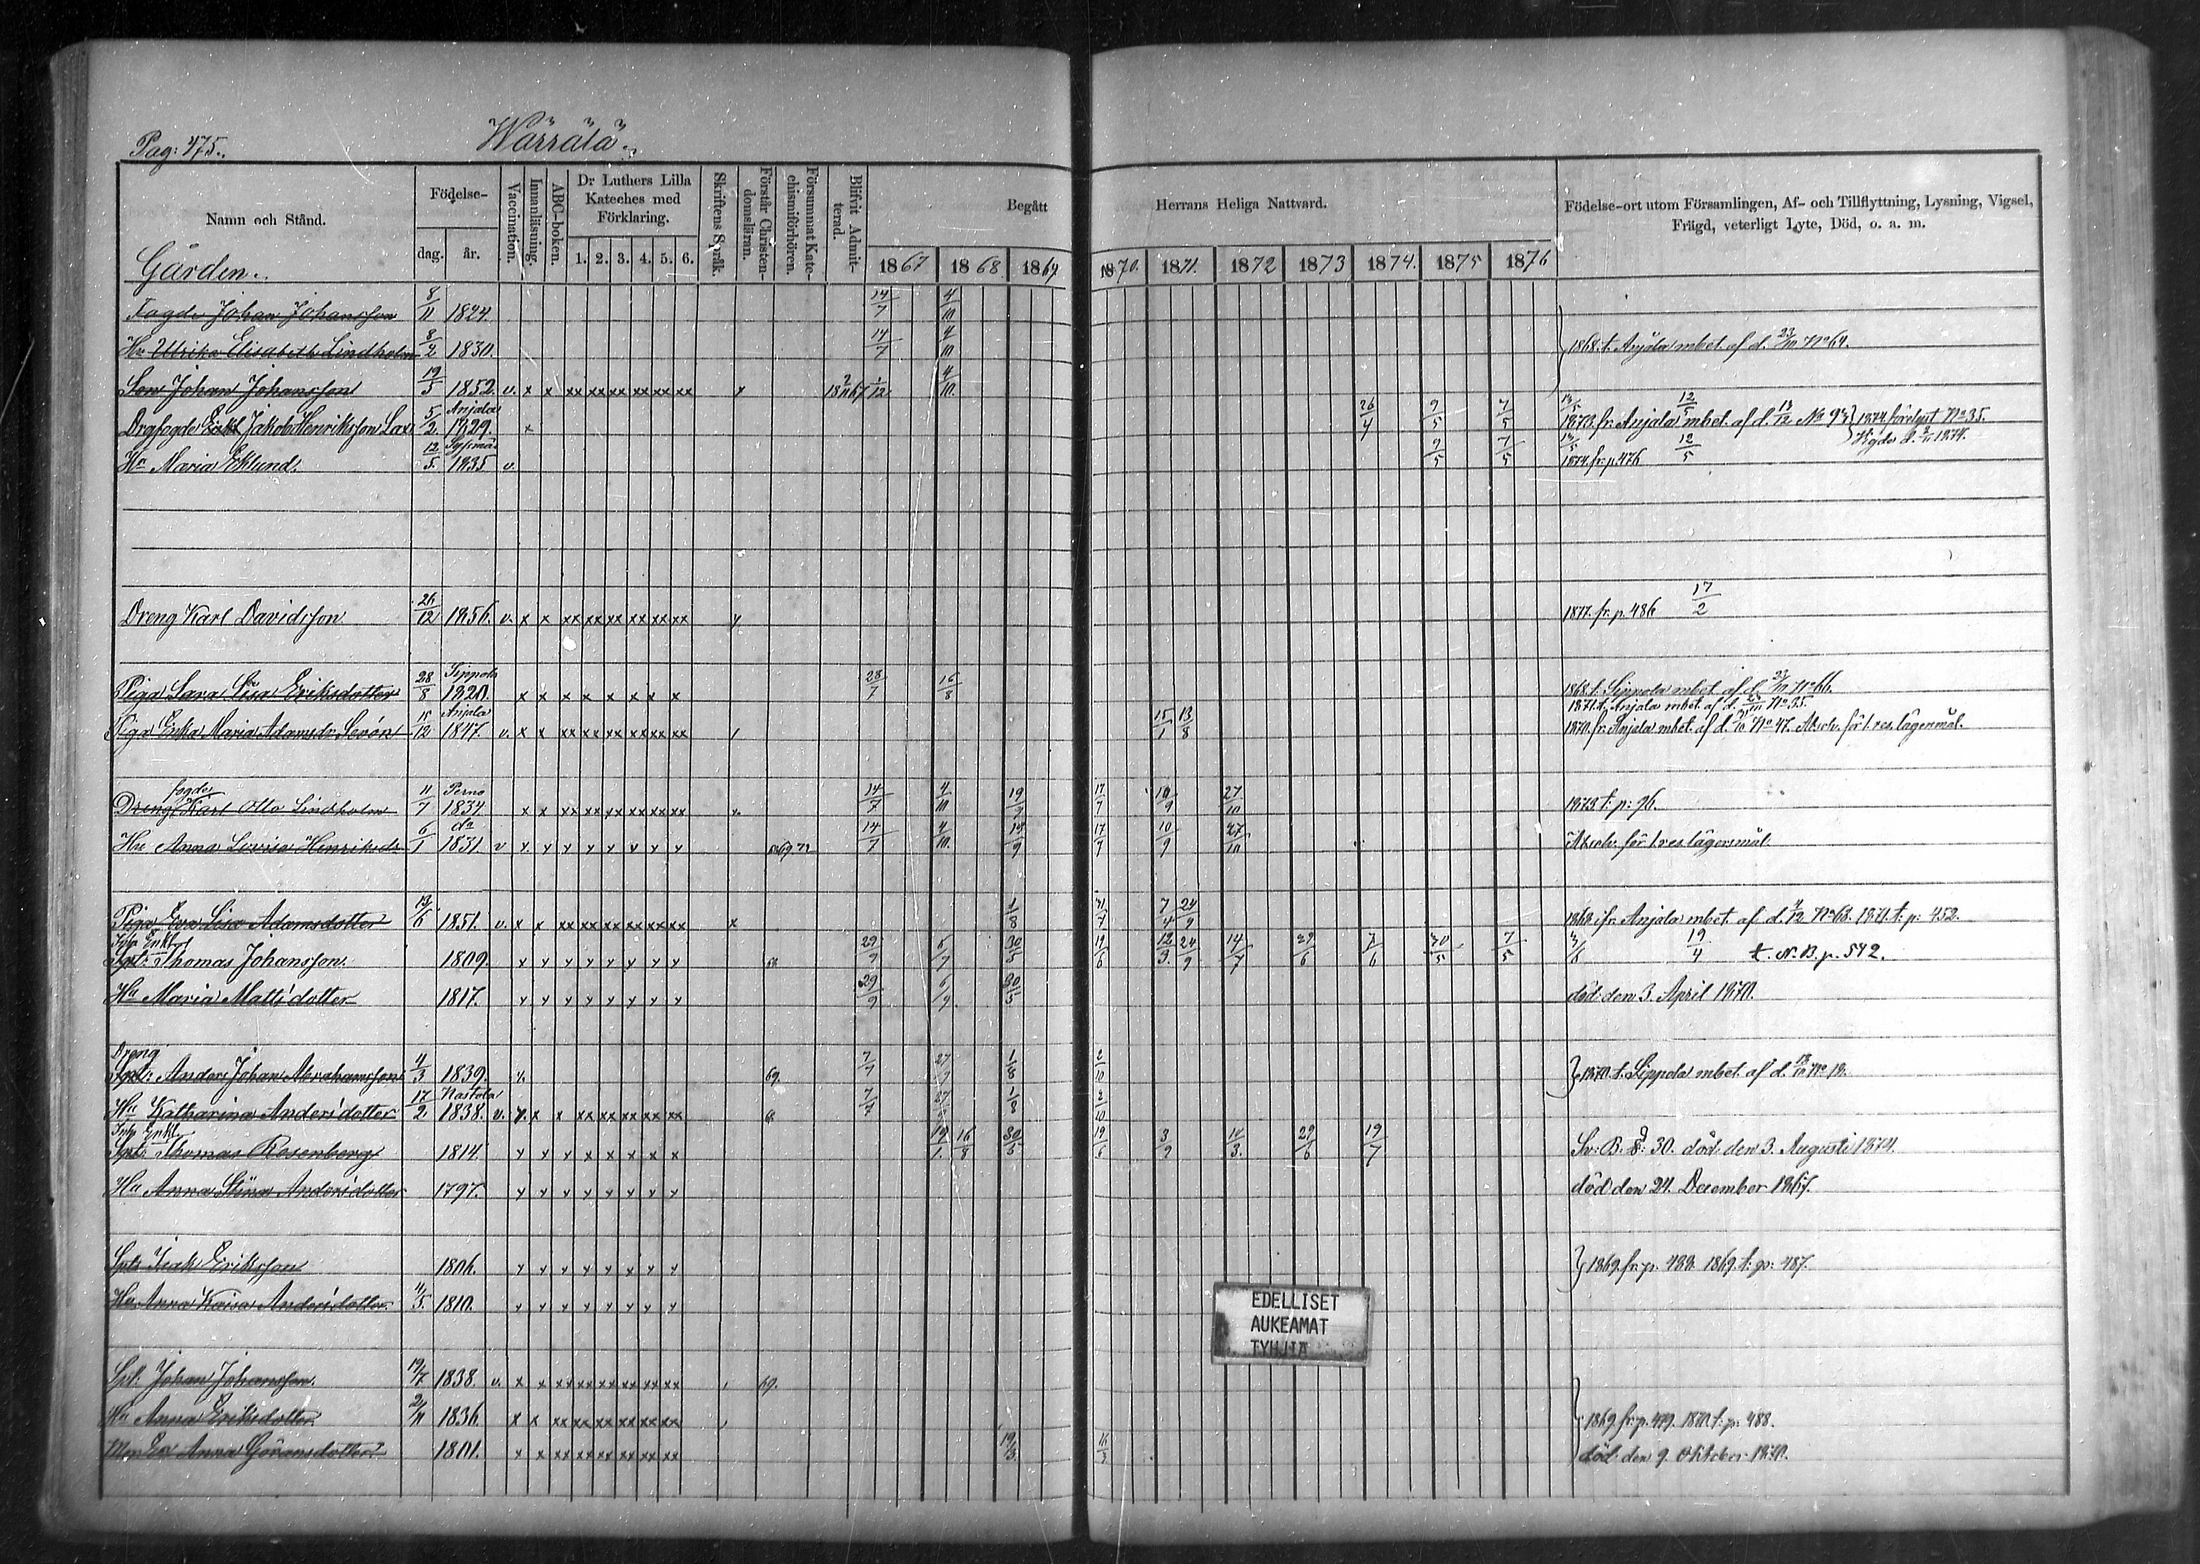 Pag: 475.
Wärrälä.
Namn och Stånd.
Födelse-
dag.
år.
Vaccination.
Innanläsning.
ABC-boken.
Dr Luthers Lilla
Kateches med
Förklaring.
1. 2. 3. 4. 5. 6.
Skriftens Språk.
Förstår Christen-
domsläran.
Försummat Kate-
chismiförhören.
Blifvit Admit-
terad.
Begått
Herrans Heliga Nattvard.
1867 1868 1869 1870. 1871. 1872 1873 1874. 1875 1876
Födelse-ort utom Församlingen, Af- och Tillflyttning, Lysning, Vigsel,
Frägd, veterligt Lyte, Död, o. a. m.
Gården.
Fogde Johan Johansson 8/11 1824. 14/7 4/10
Hu Ulrika Elisabeth Lindholm 8/2 1830. 14/7 4/10 1868. t. Anjala mbet. af d. 23/10 No 64.
Son Johan Johansson 19/5 1852. v. x x xx xx xx xx xx xx x 4/10.
Anjala
Drgfogde Enkl Jakob Henriksson 5/2. 1829. x 26/4 9/5 7/5 1873. fr. Anjala mbet. af d. 13/12 No 93 1874. No 35.
Hu Maria Eklund. 12/5. 1835 v. 9/5 7/5 1874. fr. p. 476 12/5
Dreng Karl Davidsson 26/12 1856. v. x x xx xx xx xx xx xx 1877. fr. p. 486 17/2
Sippola
Piga Sara Lisa Eriksdotter 28/8 1820. x x x x x x x x 28/7 16/8 1868. t. Sippola mbet. af d. No 66.
1871. t. Anjala mbet. af d. No 35.
Anjala
Piga Erika Maria Adamsdr 15/12 1847. v. x x xx xx xx xx xx xx 15/1 13/8 1870. fr. Anjala mbet. af d. No 47. Absolv. för 1. res. lägersmål.
fogde Perno
Dreng Karl Otto Lindholm 11/7 1834. x x xx xx xx xx xx xx x. 14/7 4/10 19/9 17/7 10/9 27/10 1873 t. p. 96.
do
Hu Anna Lovisa Henriksdr 6/1 1831. v x x x x x x x x 14/7 4/10. 19/9 17/7 10/9 27/10 Absolv. för 1. res. lägersmål.
Piga Eva Lisa Adamsdotter 13/6 1851. v. x x xx xx xx xx xx xx x 1/8 7/4 24/9 1869. fr. Anjala mbet. af d. 4/12 No 68. 1871. t. p. 452.
Inh. Enkl
Spt: Thomas Johansson. 1809. x x x x x x x x 29/9 6/7 30/5 19/6 12/3. 24/9 14/7 29/6 7/6 30/5 7/5 19/4 t. N. B. p. 542.
Hu Maria Mattsdotter 1817. x x x x x x x x 29/9 6/7 30/5 död den 3. April 1870.
Dreng
Spt: Anders Johan Abrahamsson 4/3 1839. x. 69. 7/7 1/8 2/10 1870. t. Sippola mbet. af d. 13/10 No 19.
Nastola
Hu Katharina Andersdotter 17/2 1838. v. x x x xx xx xx xx xx xx 7/7 1/8 2/10
Inh. Enkl
Spt: Thomas Rosenberg 1814. x x x x x x x x 19/1. 16/8 30/5 19/6 3/9 10/3. 29/6 19/7 Sv: B. 30. död den 3. Augusti 1874.
Hu Anna Stina Andersdotter 1797. x x x x x x x x död den 24. December 1867.
Spt: Isak Eriksson 1806. x x x x x x x x 1869. fr. p. 488. 1869. t. p. 487.
Hu Anna Kaisa Andersdotter 4/5. 1810. x x x x x x x x
Spt: Johan Johansson. 19/7 1838. v. x x xx xx xx xx xx xx 69.
Hu Anna Eriksdotter 2/11 1836 x x xx xx xx xx xx xx 1869. fr. p. 479. 1870. t. p. 488.
Mor Ea Anna Göransdotter 1801. x x xx xx xx xx xx xx 19/3. död den 9. Oktober 1870.
EDELLISET
AUKEAMAT
TYHJIÄ